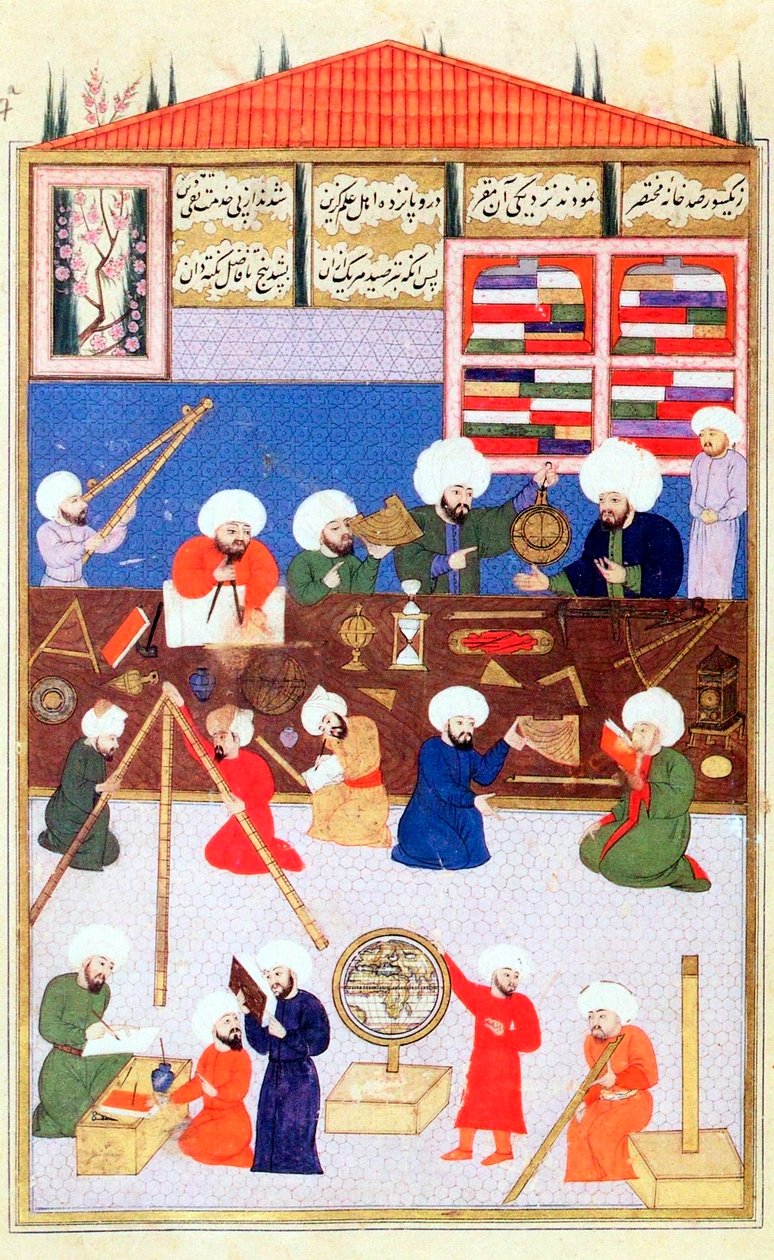 زیکسو رصد خانهٔ مختصر نمودند نزدیکی آن مقر
درو پانزده اهل علم گزین شدند از پی خدمت تقی
پس انکه بترصید هر یک ازان بشد پنج تا فاضل نکته دان